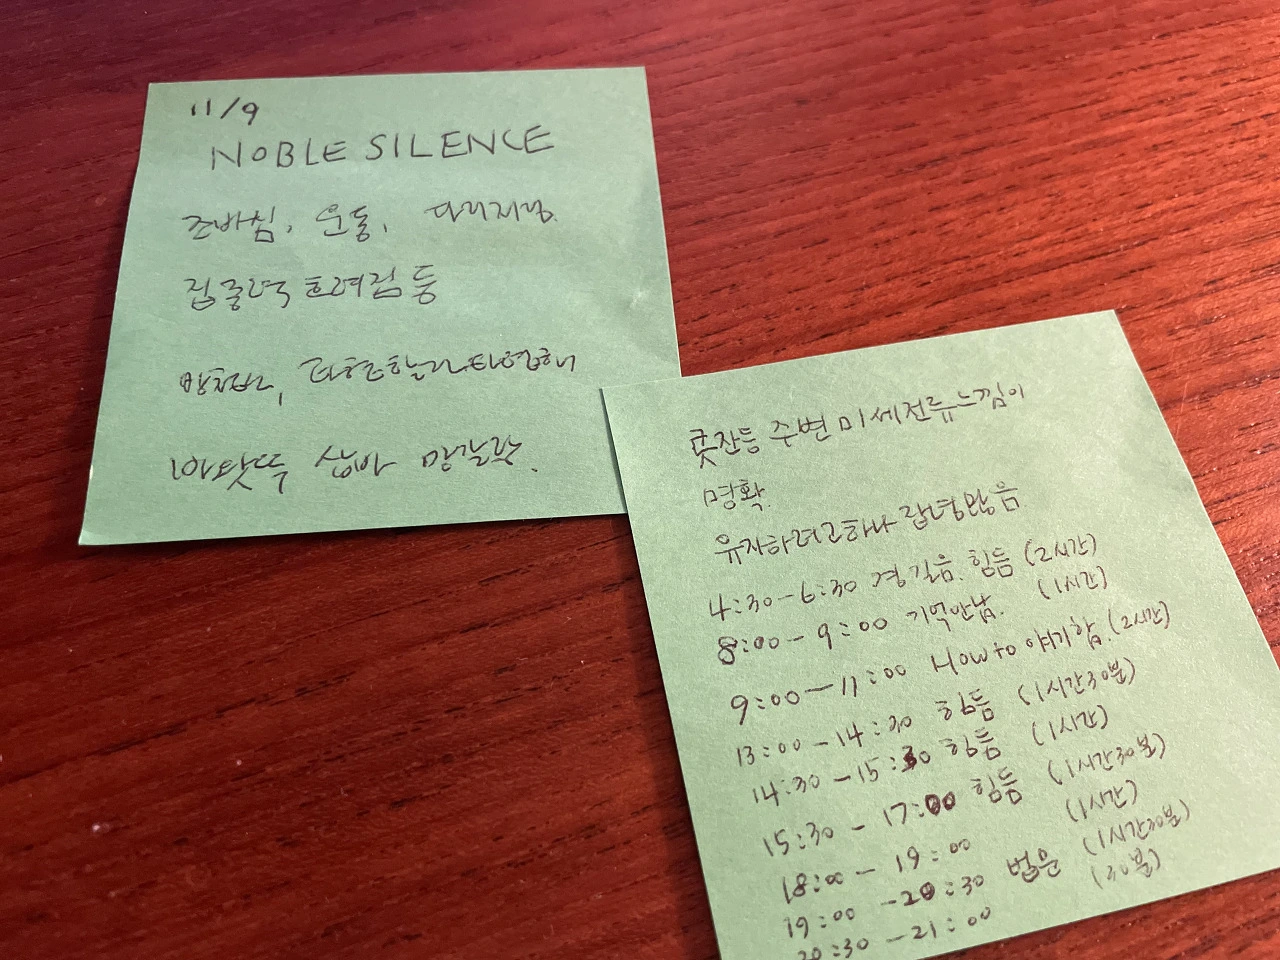 11/9
NOBLE SILENCE
조바심, 운동, 다리저림.
집중력 흐려짐 등
바왓뚜 삽바 망갈랑.
콧잔등 주변 미세전류느낌이
명확.
유지하려고하나 잡념많음
4:30-6:30 경 길음. 힘듦 (2시간)
8:00-9:00 기억안남. (1시간)
9:00-11:00 How to 얘기함. (2시간)
13:00-14:30 힘듦 (1시간30분)
14:30-15:30 힘듦 (1시간)
15:30-17:00 힘듦 (1시간30분)
18:00-19:00 (1시간)
19:00-20:30 법문 (1시간30분)
20:30-21:00 (30분)